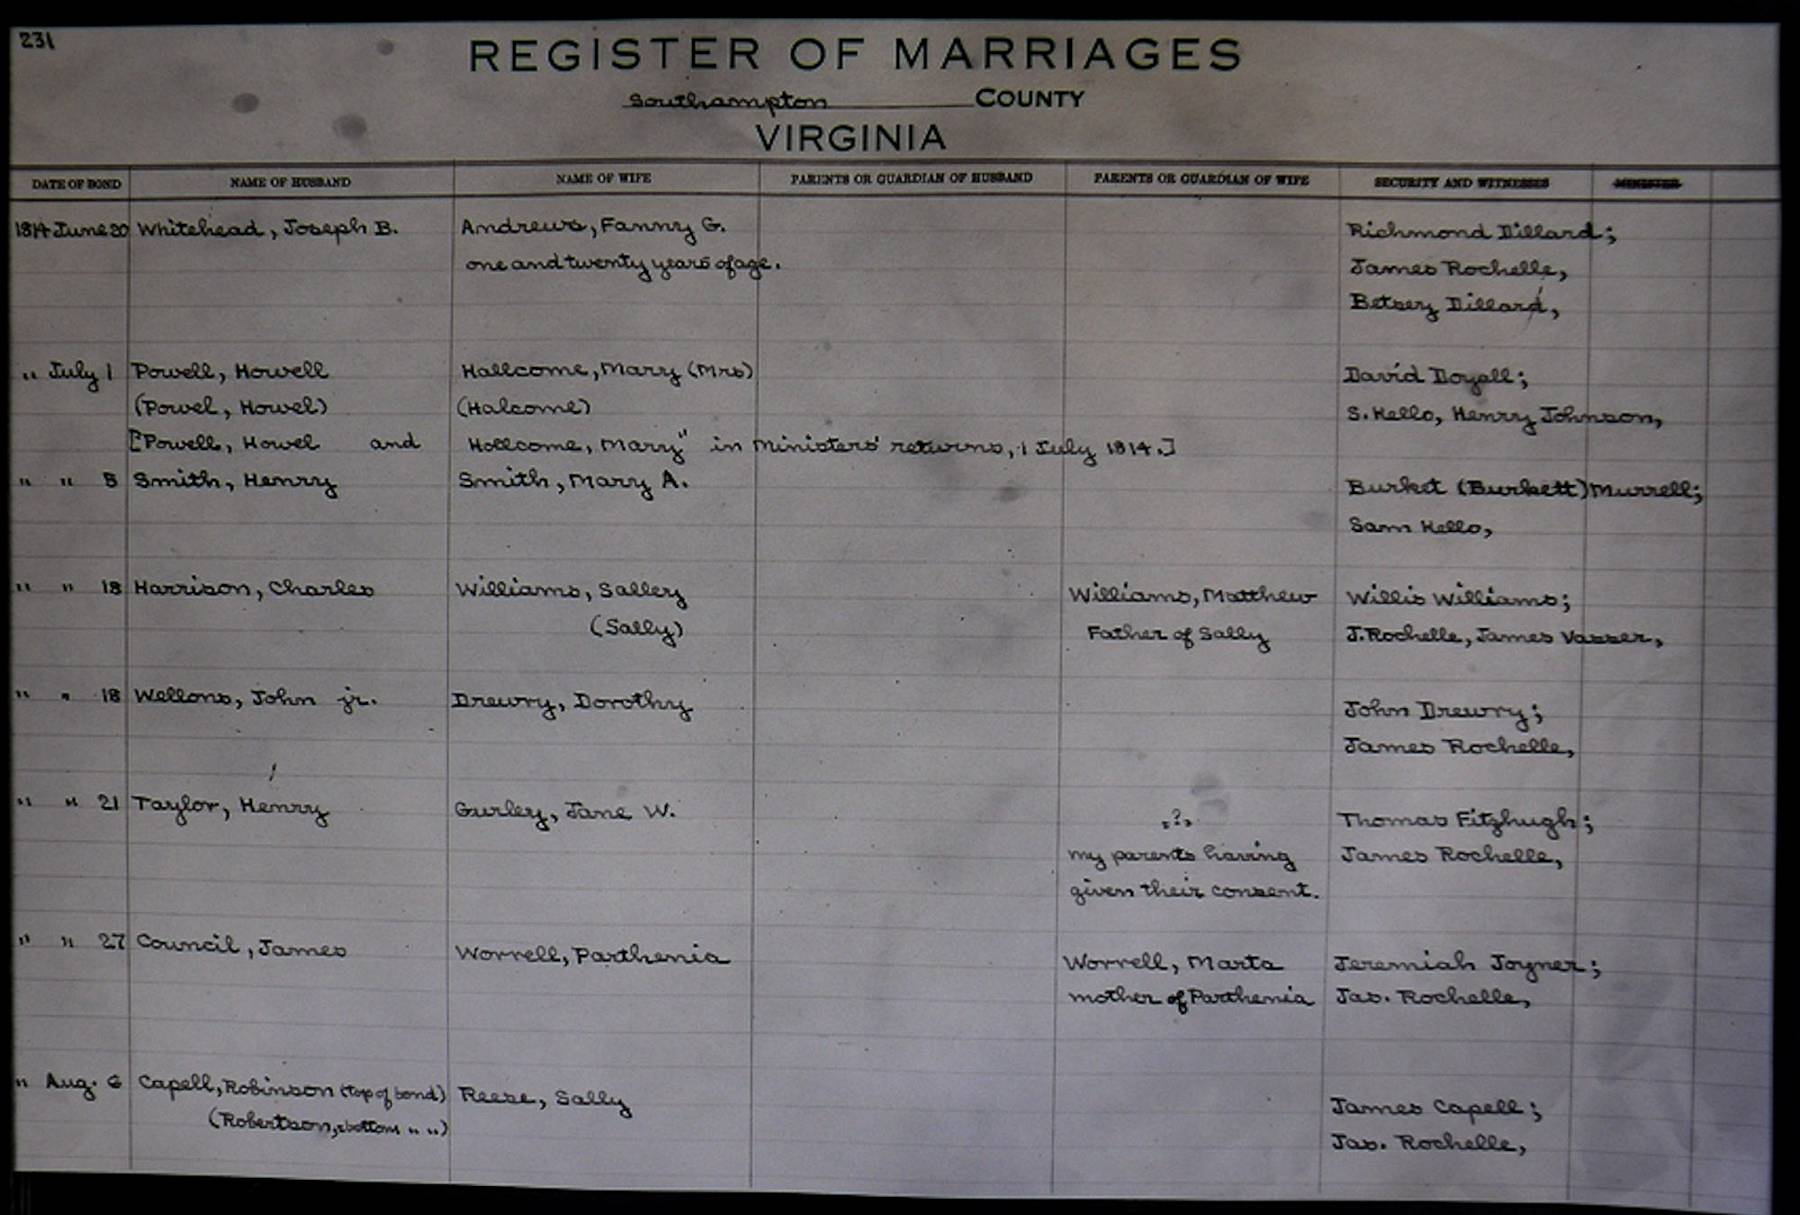 231
REGISTER OF MARRIAGES
Southampton COUNTY
VIRGINIA
DATE OF BOND NAME OF HUSBAND NAME OF WIFE PARENTS OR GUARDIAN OF HUSBAND PARENTS OR GUARDIAN OF WIFE SECURITY AND WITNESSES MINISTER
1814 June 20 Whitehead, Joseph B. Andrews, Fanny G. Richmond Dillard;
one and twenty years of age. James Rochelle,
Betsey Dillard,
" July 1 Powell, Howell Hallcome, Mary (Mrs) David Doyall;
(Powel, Howel) (Halcome) S. Kello, Henry Johnson,
["Powell, Howel and Hollcome, Mary" in Ministers' returns, 1 July 1814.]
" " 5 Smith, Henry Smith, Mary A. Burket (Burkett) Murrell;
Sam Kello,
" " 18 Harrison, Charles Williams, Salley Williams, Matthew Willis Williams;
(Sally) Father of Sally J. Rochelle, James Vasser,
" " 18 Wellons, John jr. Drewry, Dorothy John Drewry;
James Rochelle,
" " 21 Taylor, Henry Gurley, Jane W. "?" Thomas Fitzhugh;
my parents having James Rochelle,
given their consent.
" " 27 Council, James Worrell, Parthenia Worrell, Marta Jeremiah Joyner;
mother of Parthenia Jas. Rochelle,
" Aug. 6 Capell, Robinson (top of bond) Reese, Sally James Capell;
(Robertson, bottom " ") Jas. Rochelle,